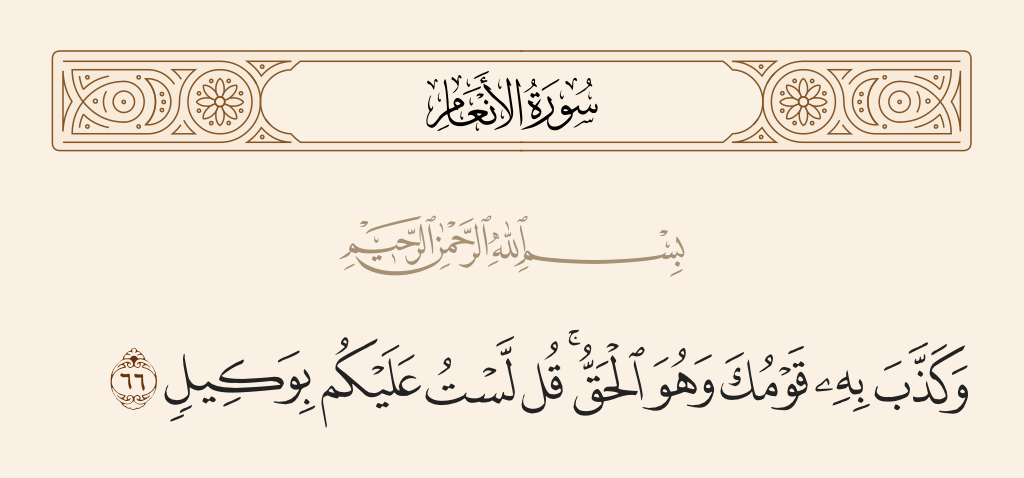 سُورَةُ الأَنْعَامِ
بِسْمِ ٱللَّهِ ٱلرَّحْمَٰنِ ٱلرَّحِيمِ
وَكَذَّبَ بِهِۦ قَوْمُكَ وَهُوَ ٱلْحَقُّ ۚ قُل لَّسْتُ عَلَيْكُم بِوَكِيلٍ ٦٦